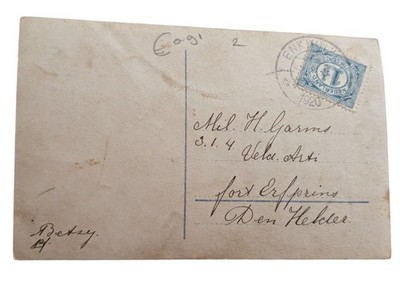 Cagi 2
ENK
1
1920
Mil. H. Garms.
3.1.4
Veld. Arti
fort Erfprins
Den Helder
Betsy.